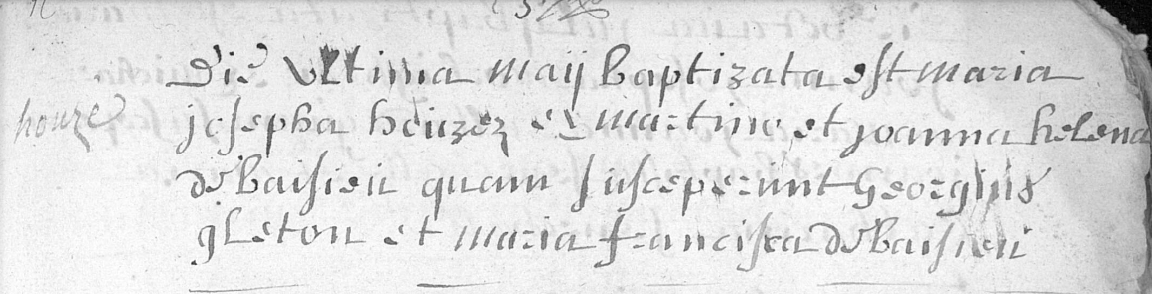 Die ultima maij baptizata est maria
houze
josepha houzez ex martino et joanna helena
debaisieu quam susceperunt Georgius
gleton et maria francisca debaisieu